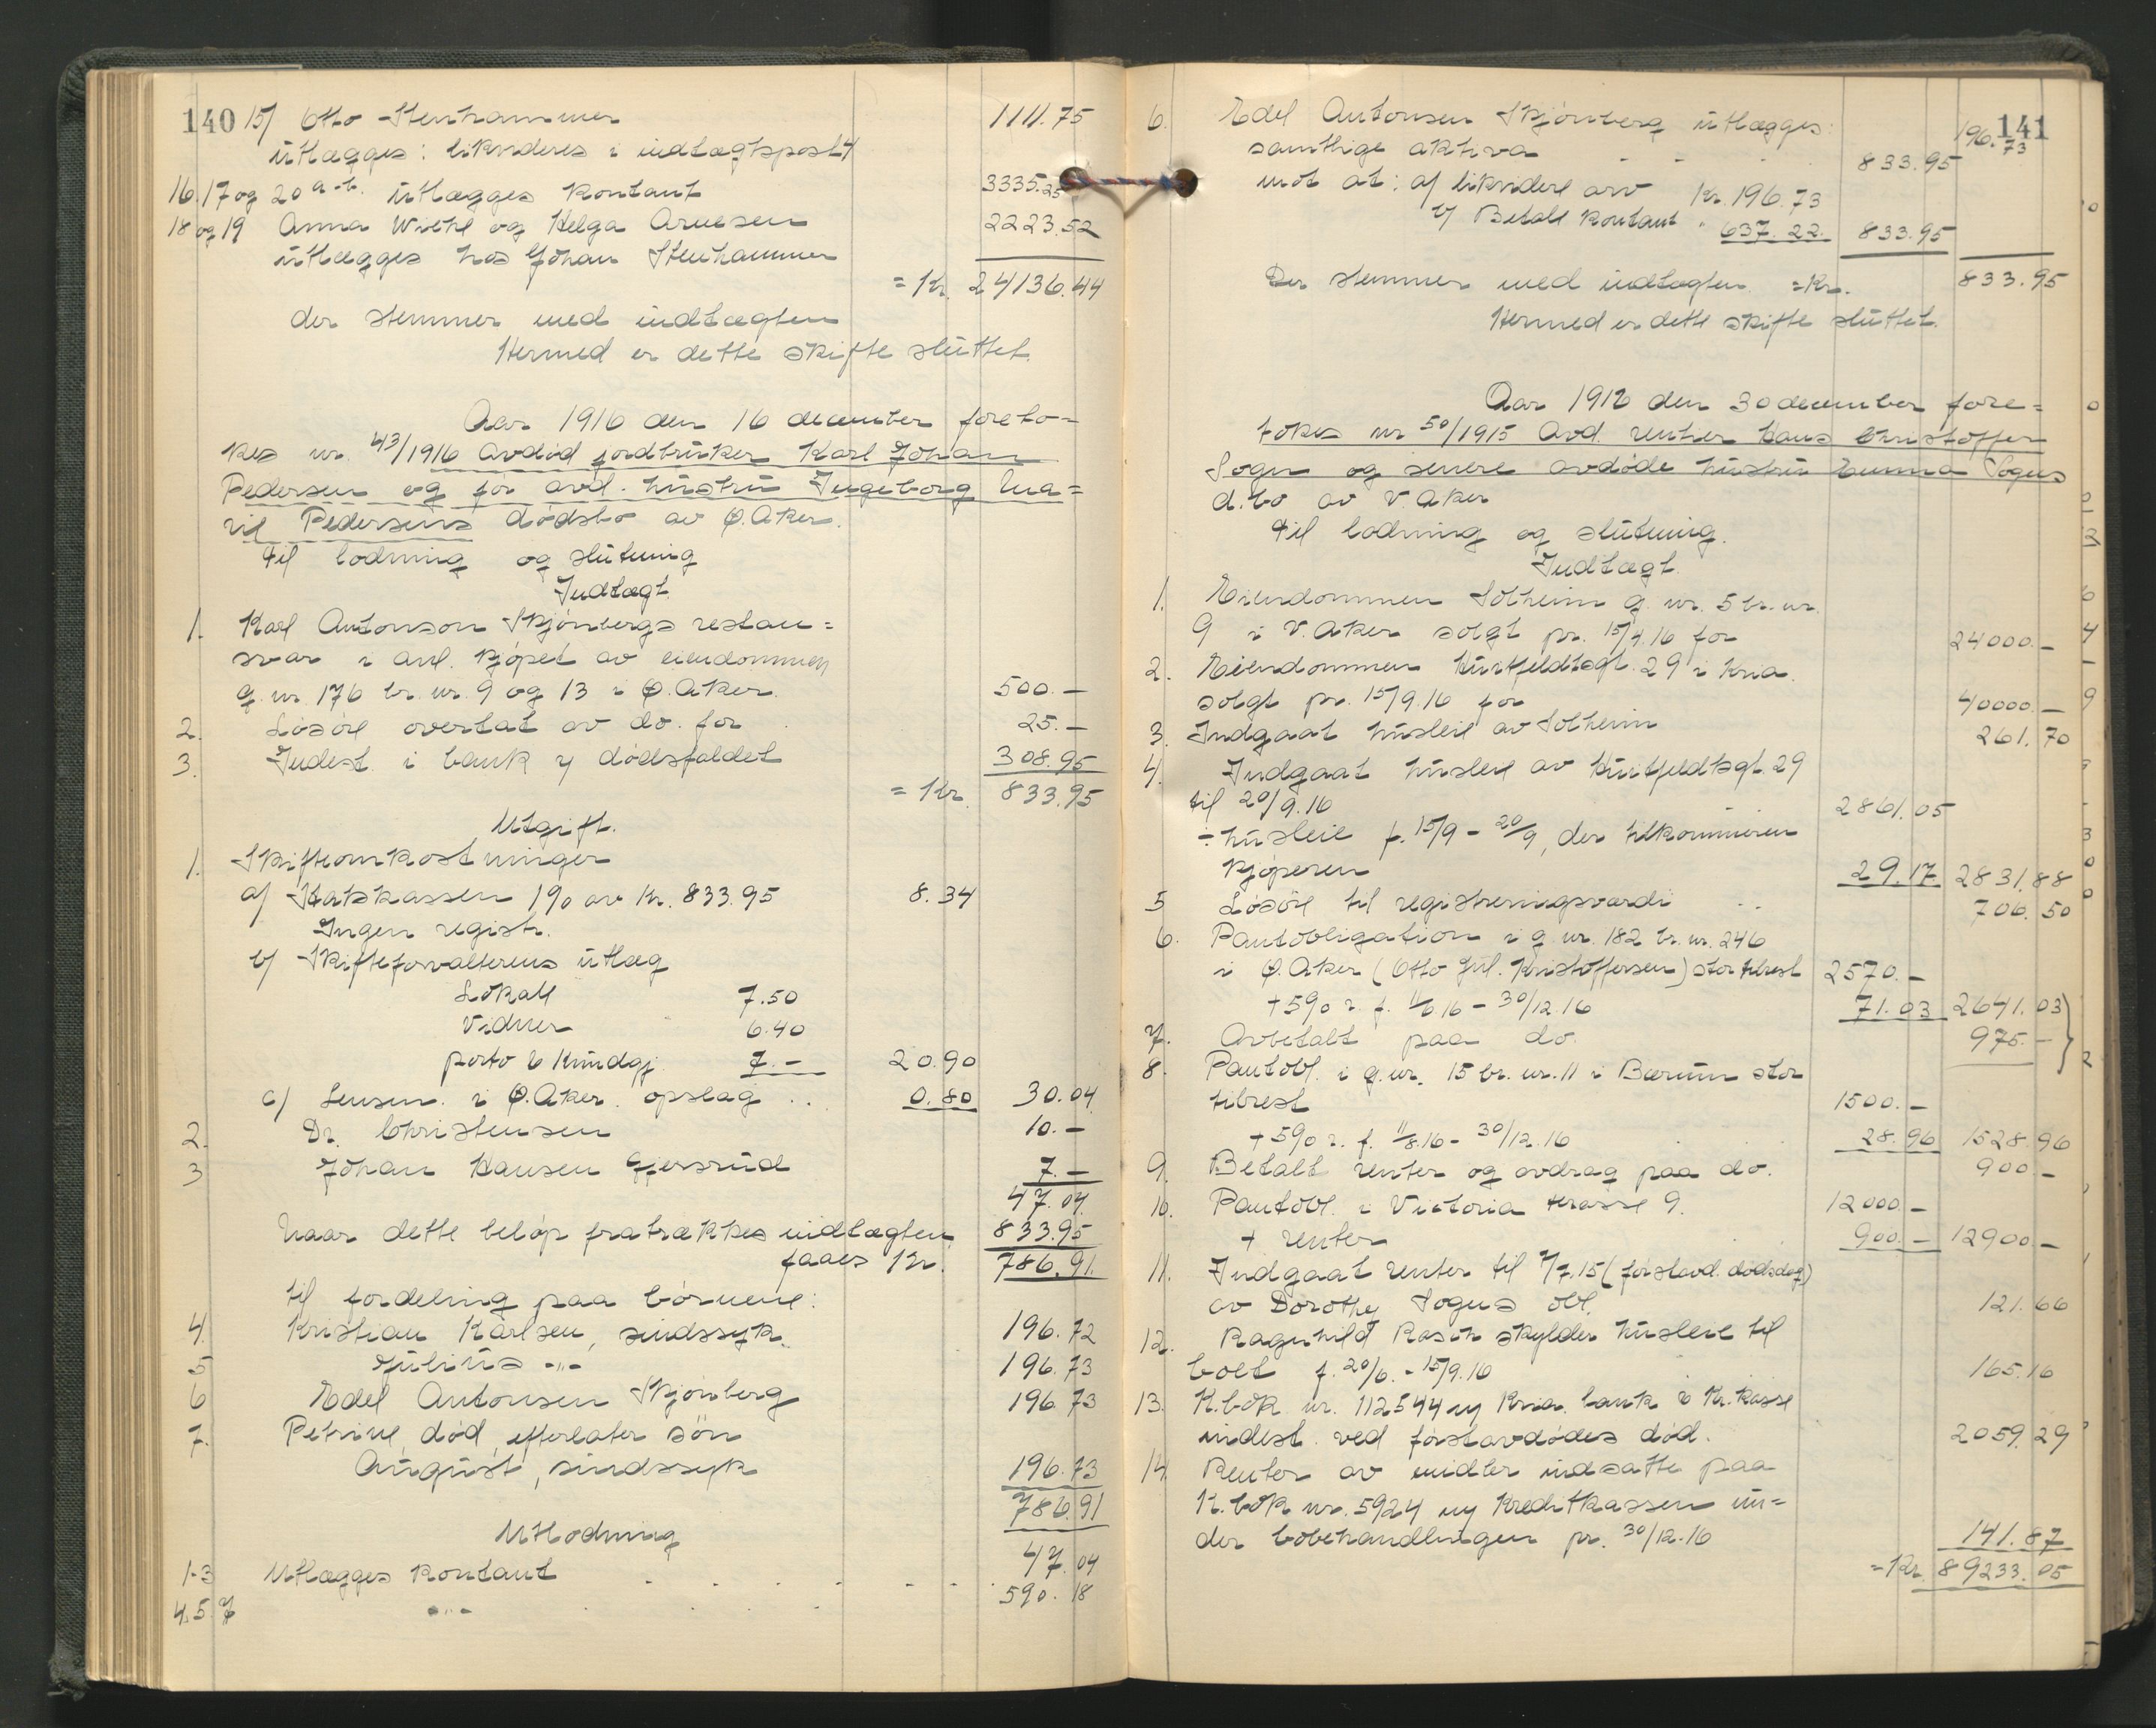 140 15/ Otto Stenhammer 1111.75
utlægges: likvideres i indtægtspost 4
16.17 og 20 a-b. utlægges kontant 3335.25
18 og 19 Anna Wiehl og Helga Arnesen 2223.52
utlægges hos Johan Stenhammer
= Kr. 24136.44
der stemmer med indtægten
Hermed er dette skifte sluttet.
Aar 1916 den 16 december foreto=
kes nr. 43/1916 avdød jordbruker Karl Johan
Pedersen og før avd. hustru Ingeborg Ma=
rie Pedersens dødsbo av Ø. Aker.
til lodning og slutning
Indtægt.
1. Karl Antonson Skjønbergs restan=
svar i anl. kjøpet av eiendommen
g. nr. 176 br. nr. 9 og 13 i Ø. Aker. 500.—
2. Løsøre overtat av do. for 25.—
3. Indest. i bank v dødsfaldet 308.95
= Kr. 833.95
Utgift.
1. Skifteomkostninger
a/ Statskassen 1% av Kr. 833.95 8.34
Ingen registr.
b/ Skifteforvalterens utlæg
Lokale 7.50
Vidner 6.40
porto & Kundgj. 7.— 20.90
c/ Lensm. i Ø. Aker. opslag .. 0.80 30.04
2. Dr. Christensen 10.—
3 Johan Hansen Gjersrud 7.—
47.04
Naar dette beløp fratrækkes indtægten 833.95
faaes Kr. 786.91
til fordeling paa børnene:
4. Kristian Karlsen, sindssyk. 196.72
5 Julius -"- 196.73
6 Edel Antonsen Skjønberg 196.73
7. Petrine, død, efterlater søn
August, sindssyk 196.73
786.91
Utlodning
1-3 Utlægges kontant 47.04
4.5.7 -"- 590.18
141
6. Edel Antonsen Skjønberg utlægges: 196.73
samtlige aktiva 833.95
mot at: a/ likvidere arv Kr. 196.73
b/ Betale kontant " 637.22. 833.95
Der stemmer med indtægten =Kr. 833.95
Hermed er dette skifte sluttet.
Aar 1916 den 30 december fore=
tokes nr 50/1915 Avd. rentier Hans Christoffer
Sogn og senere avdøde hustru Emma Sogns
d.bo av V. Aker
til lodning og slutning.
Indtægt.
1. Eiendommen Solheim g. nr. 5 br. nr.
9 i V. Aker solgt pr. 15/9.16 for 24000.—
2. Eiendommen Huitfeldtsgt. 29 i Kria.
solgt pr. 15/9.16 for 40000.—
3. Indgaat husleie av Solheim 261.70
4. Indgaat husleie av Huitfeldtsgt. 29
til 20/9.16 2861.05
÷ husleie f. 15/9 – 20/9, der tilkommer
kjøperen 29.17 2831.88
5 Løsøre til registreringsværdi .. 706.50
6. Pantobligation i g. nr. 182 br. nr. 246
i Ø. Aker (Otto Jul. Kristoffersen) stor tilrest 2570.—
+ 5% r. f. 11/6 16 – 30/12.16 71.03 2641.03
7. Avbetalt paa do. 975.—
8. Pantobl. i g. nr. 15 br. nr. 11 i Bærum stor
tilrest 1500.—
+ 5% r. f. 11/8.16 – 30/12.16 28.96 1528.96
9. Betalt renter og avdrag paa do. 900.—
10. Pantobl. i Victoria terasse 9. 12000.—
+ renter 900.— 12900.—
11. Indgaat renter til 7/7.15 (førstavd. dødsdag)
av Dorothy Sogns obl. 121.66
12. Ragnhild Rasch skylder husleie til
boet f. 20/6. – 15/9.16 165.16
13. K.bok nr. 112544 i Kria. bank & Kr.kasse
indest. ved førstavdødes død. 2059.29
14. Renter av midler indsatte paa
K.bok nr. 5924 i Kreditkassen un=
der bobehandlingen pr. 30/12.16 141.87
=Kr. 89233.05